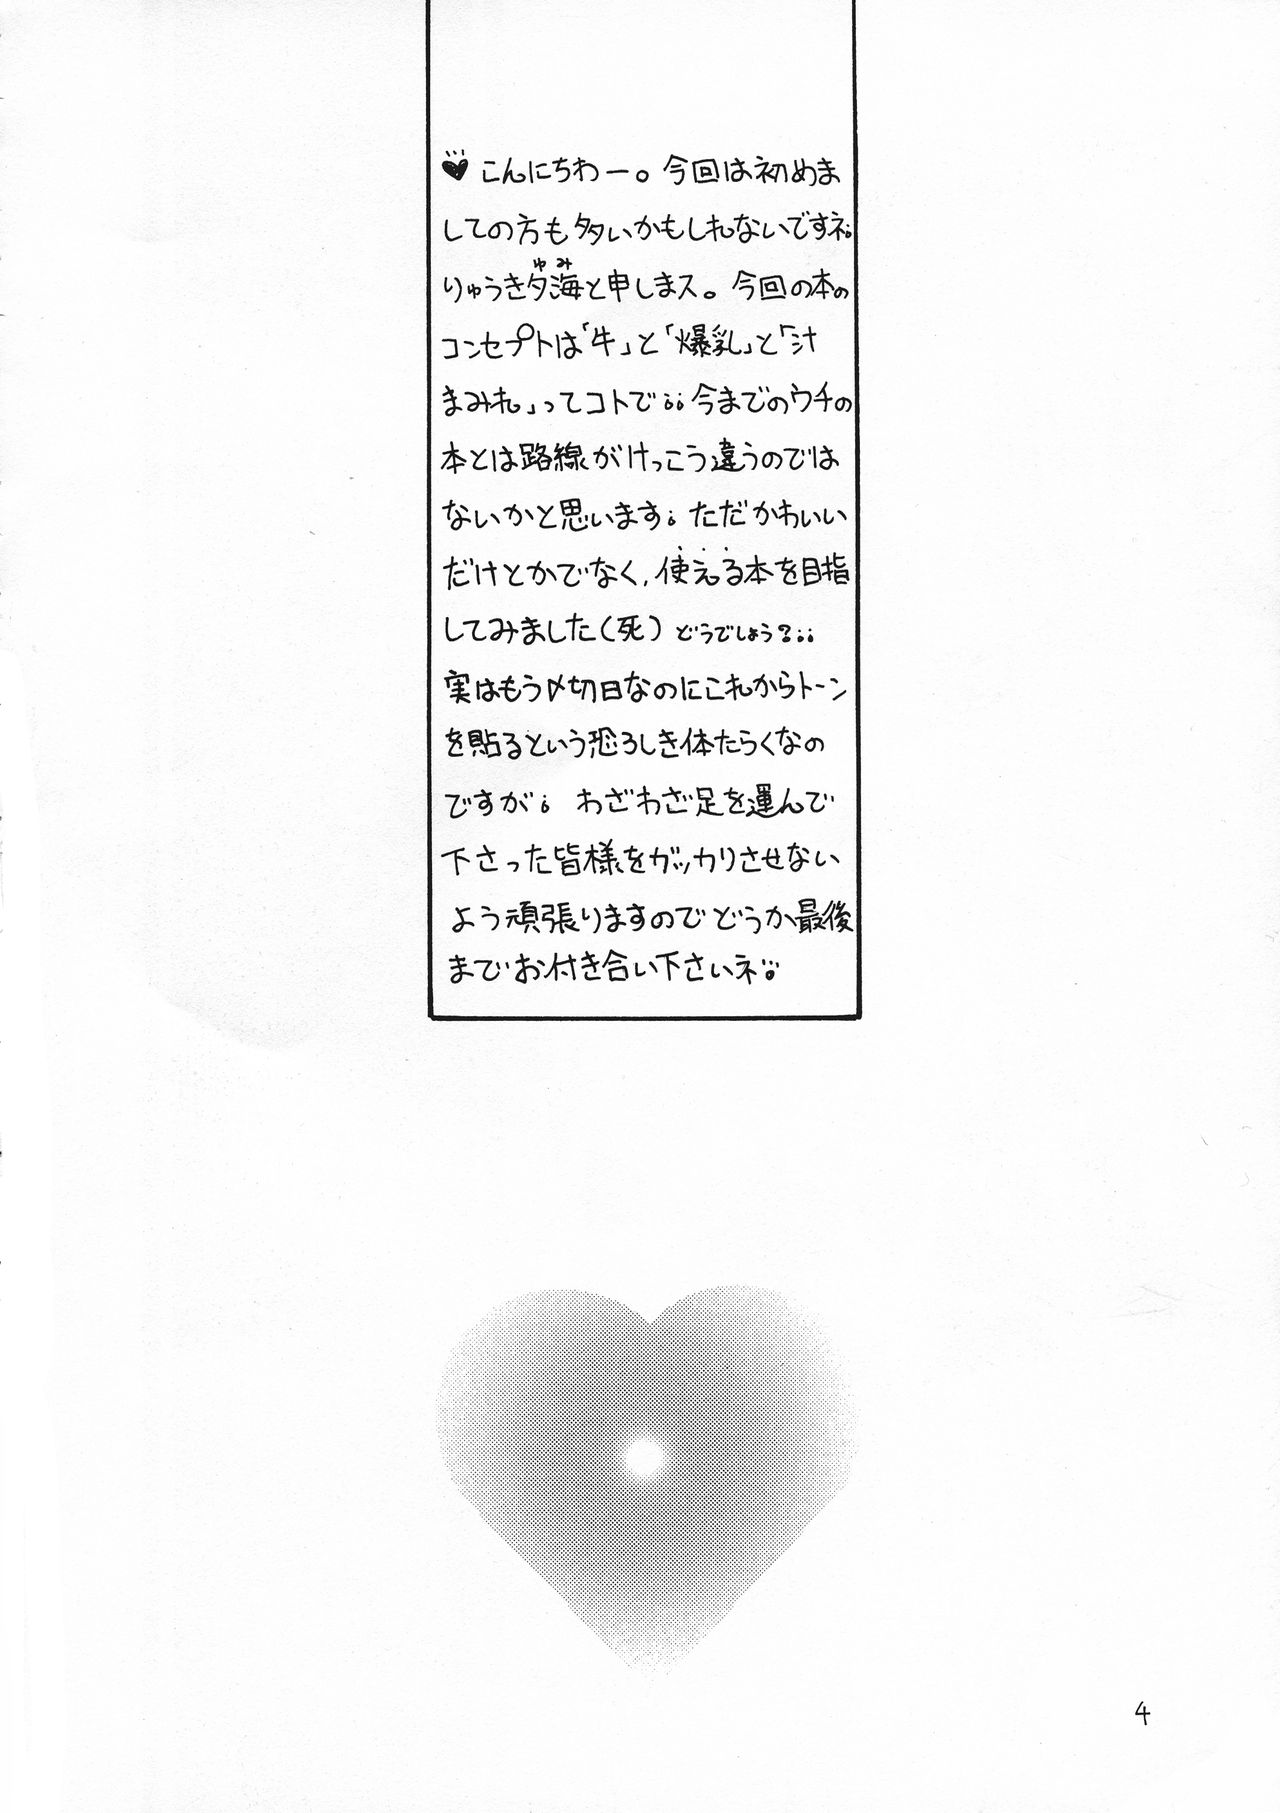 ♥こんにちわー。今回は初めま
しての方も多いかもしれないですネ。
ゆみ
りゅうき夕海と申しまス。今回の本の
コンセプトは「牛」と「爆乳」と「汁
まみれ」ってコトで;;今までのウチの
本とは路線がけっこう違うのでは
ないかと思います;ただかわいい
だけとかでなく、使える本を目指
してみました(死)どうでしょう?;;
実はもう〆切日なのにこれからトーン
を貼るという恐ろしき体たらくなの
ですが; わざわざ足を運んで
下さった皆様をガッカリさせない
よう頑張りますのでどうか最後
までお付き合い下さいネ;
4